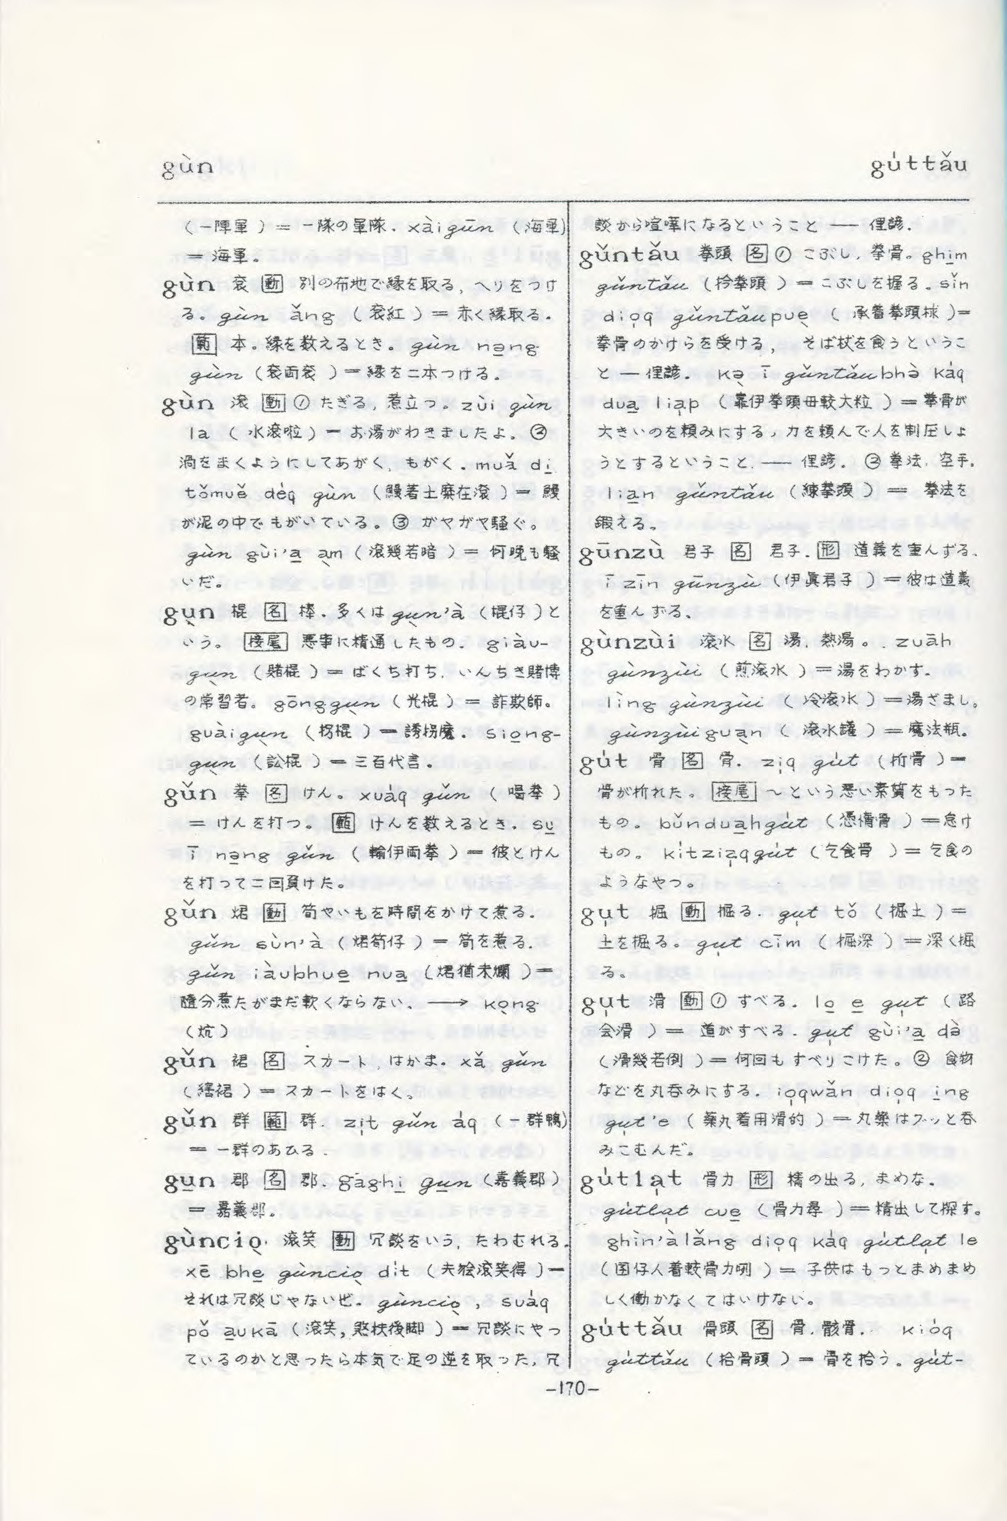 gùn
gu̍ttǎu
(一陣軍 ) = 一隊の軍隊. xàigūn (海軍)
= 海軍。
gùn 袞 動 別の布地で縁を取る, ヘリをつけ
る。gùn ǎng ( 袞紅 ) = 赤く縁取る。
量 本。縁を数えるとき。gùn nạng
gùn (袞両袞 ) = 縁を二本つける。
gùn 滾 動 ① たぎる, 煮立つ。zùi gùn
la ( 水滾啦 ) = お湯がわきましたよ。②
渦をまくようにしてあがく, もがく。muǎ di̱
tǒmuě dėq gùn (鰻著土糜在滾 ) = 鰻
が泥の中でもがいている。③ ガヤガヤ騒ぐ。
gùn gùi'a̱ a̱m ( 滾幾若暗 ) = 何晩も騒
いだ。
gụn 棍 名 棒. 多くは gụn'à (棍仔 ) と
いう。接尾 悪事に精通したもの. giàu-
gụn (賭棍 ) = ばくち打ち, いんちき賭博
の常習者。gōnggụn (光棍 ) = 詐欺師。
guàigụn (拐棍 ) = 誘拐魔. siọng-
gụn (訟棍 ) = 三百代言。
gǔn 拳 名 けん。xuȧq gǔn ( 喝拳 )
= けんを打つ。量 けんを数えるとき. su̱
ī nạng gǔn ( 輸伊両拳 ) = 彼とけん
を打って二回負けた。
gǔn 焄 動 筍やいもを時間をかけて煮る.
gǔn sùn'à (焄筍仔 ) = 筍を煮る.
gǔn iàubhue̱ nua̱ (焄猶未爛 ) =
随分煮たがまだ軟くならない. ──→ kọng
(炕)
gǔn 裙 名 スカート, はかま. xǎ gǔn
( 裙 ) = スカートをはく。
gǔn 群 量 群. zi̍t gǔn ȧq ( 一群鴨)
= 一群のあひる.
gu̱n 郡 名 郡. gāghi̱ gu̱n (嘉義郡 )
= 嘉義郡.
gùnciọ 滾笑 動 冗談をいう, たわむれる.
xē bhe̱ gùnciọ di̍t (夫絵滾笑得 ) =
それは冗談じゃないぜ. gùnciọ , suȧq
pǒ a̱ukā ( 滾笑, 煞扶後脚 ) = 冗談にやっ
ているのかと思ったら本気で足の逆を取った, 冗
談から喧嘩になるということ ── 俚諺.
gǔntǎu 拳頭 名 ① こぶし, 拳骨。ghi̱m
gǔntǎu ( 拎拳頭 ) = こぶしを握る。sīn
diọq gǔntǎupuẹ ( 承着拳頭 )=
拳骨のかけらを受ける, そば杖を食うというこ
と ── 俚諺. kạ ī gǔntǎubhà káq
dua̱ liạp (靠伊拳頭毋較大粒 ) = 拳骨が
大きいのを頼みにする, 力を頼んで人を制圧しょ
うとするということ. ── 俚諺. ② 拳法, 空手.
lia̱n gǔntǎu (練拳頭 ) = 拳法を
鍛える。
gūnzù 君子 名 君子. 形 道義を重んずる.
ī zīn gūnzù (伊真君子 ) = 彼は道義
を重んずる.
gùnzùi 滾水 名 湯, 熱湯。. zuāh
gùnzùi (煎滾水 ) = 湯をわかす.
lìng gùnzùi ( 冷滾水 ) = 湯ざまし。
gùnzùiguạn ( 滾水罐 ) = 魔法瓶.
gu̍t 骨 名 骨. ziq gu̍t (折骨 ) =
骨が折れた。接尾 ～という悪い素質をもった
もの。bǔndua̱hgu̍t (憑惰骨 ) = 怠け
もの。kitziaqgu̍t (乞食骨 ) = 乞食の
ようなやつ。
gụt 掘 動 掘る. gụt tǒ ( 掘土 ) =
土を掘る。gụt cīm ( 掘深 ) = 深く掘
る。
gụt 滑 動 ① すべる. lo̱ e̱ gụt (路
会滑 ) = 道がすべる. gụt gùi'a̱ dà
(滑幾若倒 ) = 何回もすべりこけた。② 食物
などを丸呑みにする. iọqwǎn diọq i̱ng
gụt e ( 薬丸着用滑的 ) = 丸薬はフーッと呑
みこむんだ。
gu̍tlạt 骨力 形 精の出る, まめな.
gu̍tlạt cue̱ (骨力尋 ) = 精出して探す。
ghìn'àlǎng diọq káq gu̍tlạt le
(囡仔人着較骨力咧 ) = 子供はもっとまめまめ
しく働かなくてはいけない。
gu̍ttǎu 骨頭 名 骨. 骸骨. kióq
gu̍ttǎu (拾骨頭 ) = 骨を拾う。gu̍t-
-170-